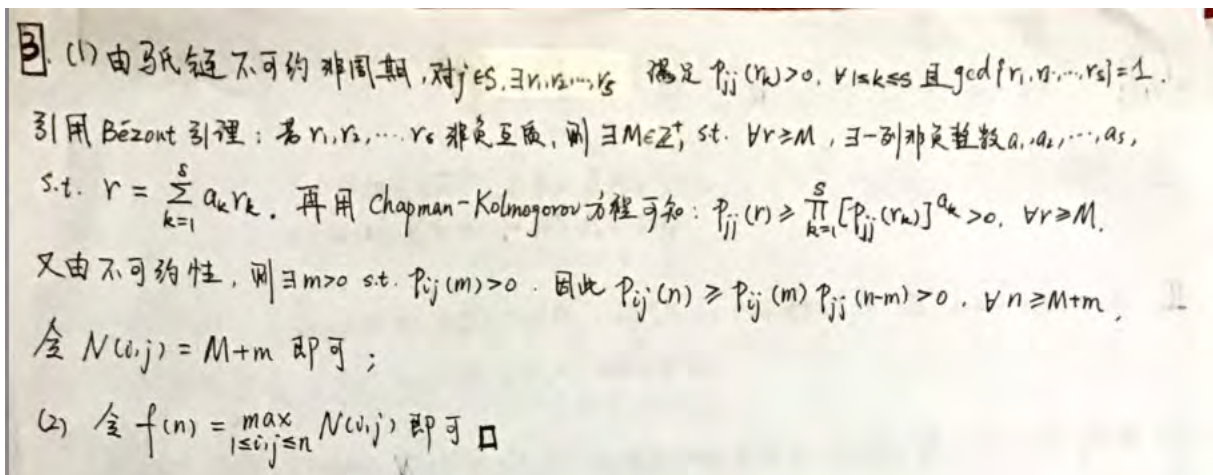 3. (1) 由马氏链不可约非周期，对j∈S, ∃r₁,r₂,…,rₛ 满足 Pⱼⱼ(rₖ)>0, ∀1≤k≤s 且 gcd{r₁,r₂,…,rₛ}=1.
引用 Bézout 引理：若 r₁,r₂,…rₛ 非负互质，则 ∃M∈Z⁺, st. ∀r≥M, ∃一列非负整数 a₁,a₂,…,aₛ,
s.t. r = ∑_{k=1}^{s} aₖrₖ. 再用 Chapman-Kolmogorov 方程可知：Pⱼⱼ(r) ≥ ∏_{k=1}^{s} [Pⱼⱼ(rₖ)]^{aₖ} >0, ∀r≥M.
又由不可约性，则∃m>0 s.t. Pᵢⱼ(m)>0. 因此 Pᵢⱼ(n) ≥ Pᵢⱼ(m) Pⱼⱼ(n-m) >0, ∀n≥M+m,
令 N(i,j) = M+m 即可；
(2) 令 f(n) = max_{1≤i,j≤n} N(i,j) 即可 □